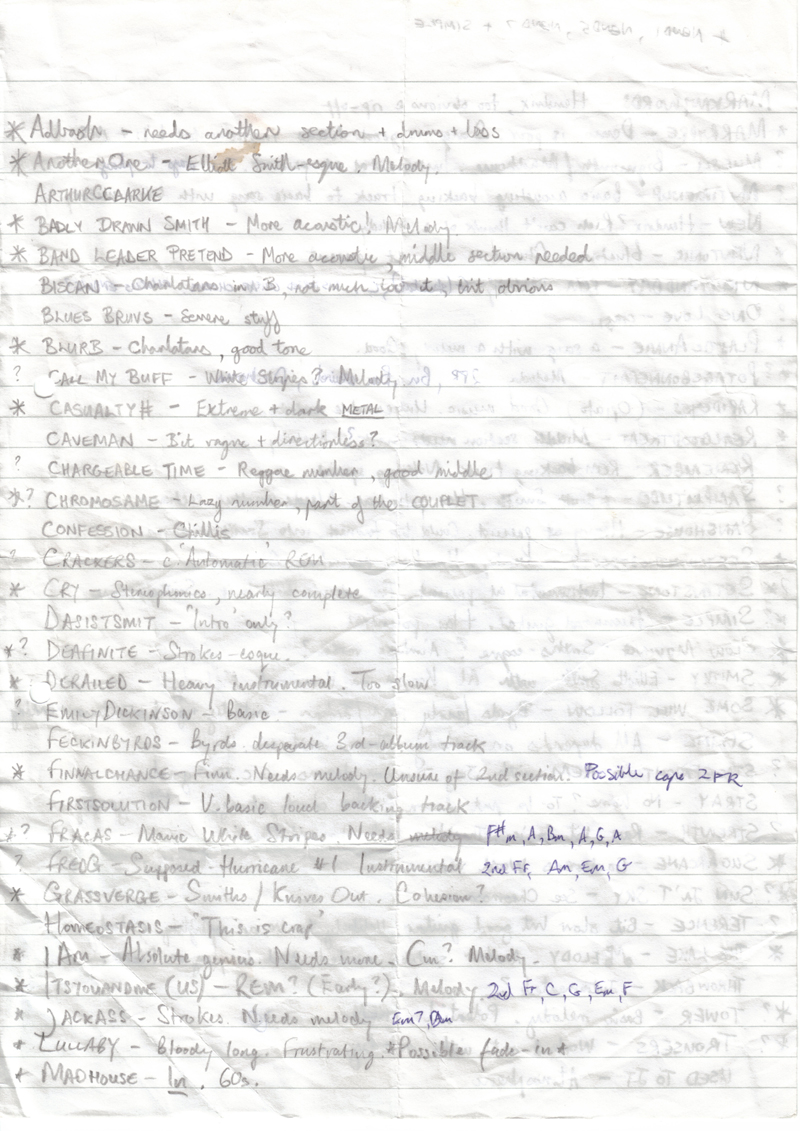 * Adbash - needs another section + drums + lbs
* Another One - Elliott Smith-esque. Melody.
ARTHURCCLARKE
* BADLY DRAWN SMITH - More acoustic! Melody
* BAND LEADER PRETEND - More acoustic, middle section needed
BISCAN - Charlatans in B, not much to it, but obvious
BLUES BRUVS - Severe stuff
* BLURB - Charlatans, good tone
? CALL MY BUFF - White Stripes? Melody
* CASUALTY# - Extreme + dark METAL
CAVEMAN - Bit vague + directionless?
? CHARGEABLE TIME - Reggae number, good middle
*? CHROMOSAME - Lazy number, part of the COUPLET
CONFESSION - Chillis
? CRACKERS - c. 'Automatic' REM
* CRY - Stereophonics, nearly complete
DASISTSMIT - "Intro" only?
*? DEAFINITE - Strokes-esque.
* DERAILED - Heavy instrumental. Too slow
? EMILYDICKINSON - Basic
FECKINBYRDS - Byrds. desperate 3rd-album track
* FINNALCHANCE - Finn. Needs melody. Unsure of 2nd section. Possible capo 2 FR
FIRSTSOLUTION - V. basic loud backing track
*? FRACAS - Manic White Stripes. Needs melody F#m, A, Bm, A, G, A
? FREUG - Supposed Hurricane #1 Instrumental 2nd Fr, Am, Em, G
* GRASSVERGE - Smiths / Knives Out. Cohesion?
HOMEOSTASIS - "This is crap"
* I AM - Absolute genius. Needs more. Cm? Melody.
* ITSYOUANDME (US) - REM? (Early?). Melody 2nd Fr, C, G, Em, F
* JACKASS - Strokes. Needs melody Em7, Bm
* LULLABY - Bloody long. Frustrating. *Possible fade-in*
* MADHOUSE - In. 60s.